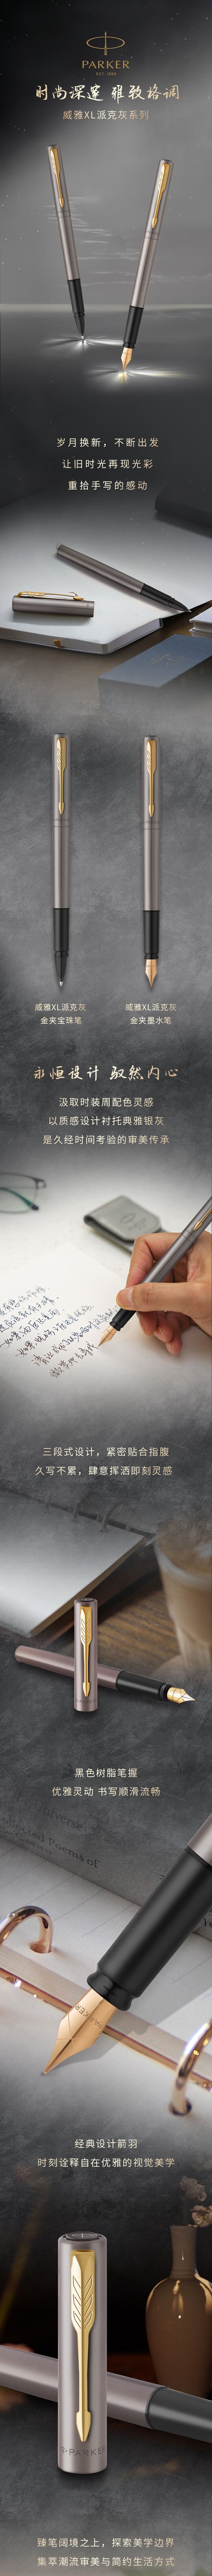 PARKER
EST. 1888
时尚深邃 雅致格调
威雅XL派克灰系列
岁月换新，不断出发
让旧时光再现光彩
重拾手写的感动
威雅XL派克灰
金夹宝珠笔
威雅XL派克灰
金夹墨水笔
永恒设计 驭然内心
汲取时装周配色灵感
以质感设计衬托典雅银灰
是久经时间考验的审美传承
三段式设计，紧密贴合指腹
久写不累，肆意挥洒即刻灵感
黑色树脂笔握
优雅灵动 书写顺滑流畅
Poems of
PARKER
经典设计箭羽
时刻诠释自在优雅的视觉美学
PARKER
臻笔阔境之上，探索美学边界
集萃潮流审美与简约生活方式